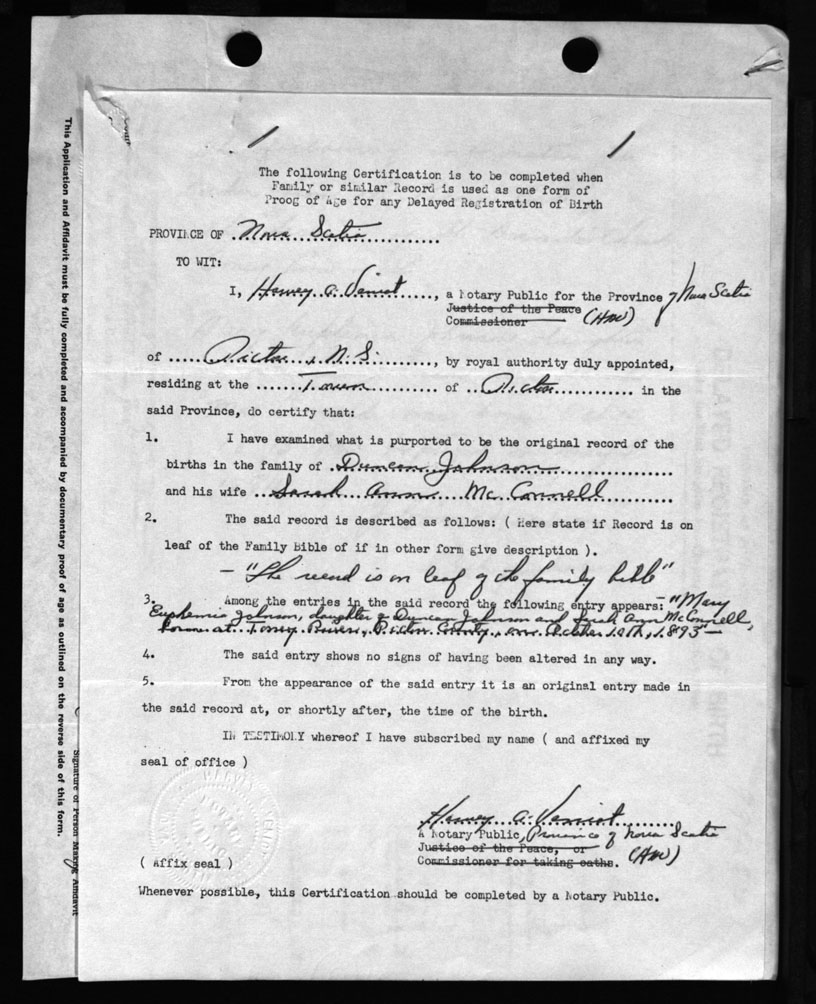 The following Certification is to be completed when
Family or similar Record is used as one form of
Proog of Age for any Delayed Registration of Birth
PROVINCE OF ..Nova Scotia............
TO WIT:
I, .Harvey A. Veniot....., a Notary Public for the Province of Nova Scotia
Justice of the Peace (HAV)
Commissioner
of .....Pictou, N.S........., by royal authority duly appointed,
residing at the .......Town........... of ..Pictou............ in the
said Province, do certify that:
1. I have examined what is purported to be the original record of the
births in the family of .Duncan Johnson................
and his wife ..Sarah Ann Mc Connell..........
2. The said record is described as follows: ( Here state if Record is on
leaf of the Family Bible of if in other form give description ).
- "The record is on leaf of the family bible"
3. Among the entries in the said record the following entry appears: "Mary
Euphemia Johnson, daughter of Duncan Johnson and Sarah Ann McConnell,
born at Toney River, Pictou County, on October 10th, 1893" -
4. The said entry shows no signs of having been altered in any way.
5. From the appearance of the said entry it is an original entry made in
the said record at, or shortly after, the time of the birth.
IN TESTIMONY whereof I have subscribed my name ( and affixed my
seal of office )
Harvey A. Veniot
A Notary Public, Province of Nova Scotia
Justice of the Peace, or (HAV)
Commissioner for taking oaths.
( Affix seal )
Whenever possible, this Certification should be completed by a Notary Public.
This Application and Affidavit must be fully completed and accompanied by documentary proof of age as outlined on the reverse side of this form.
Signature of Person Making Affidavit